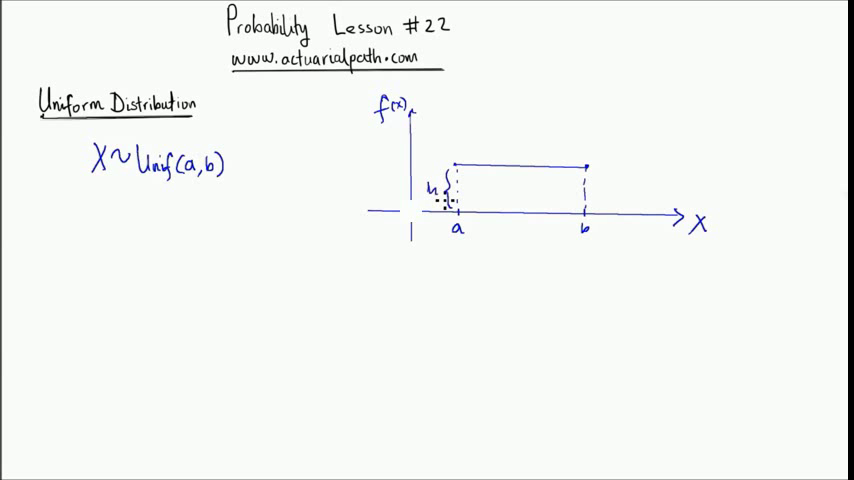 Probability Lesson #22
www.actuarialpath.com
Uniform Distribution
f(x)
X~Unif(a,b)
h
a b
X